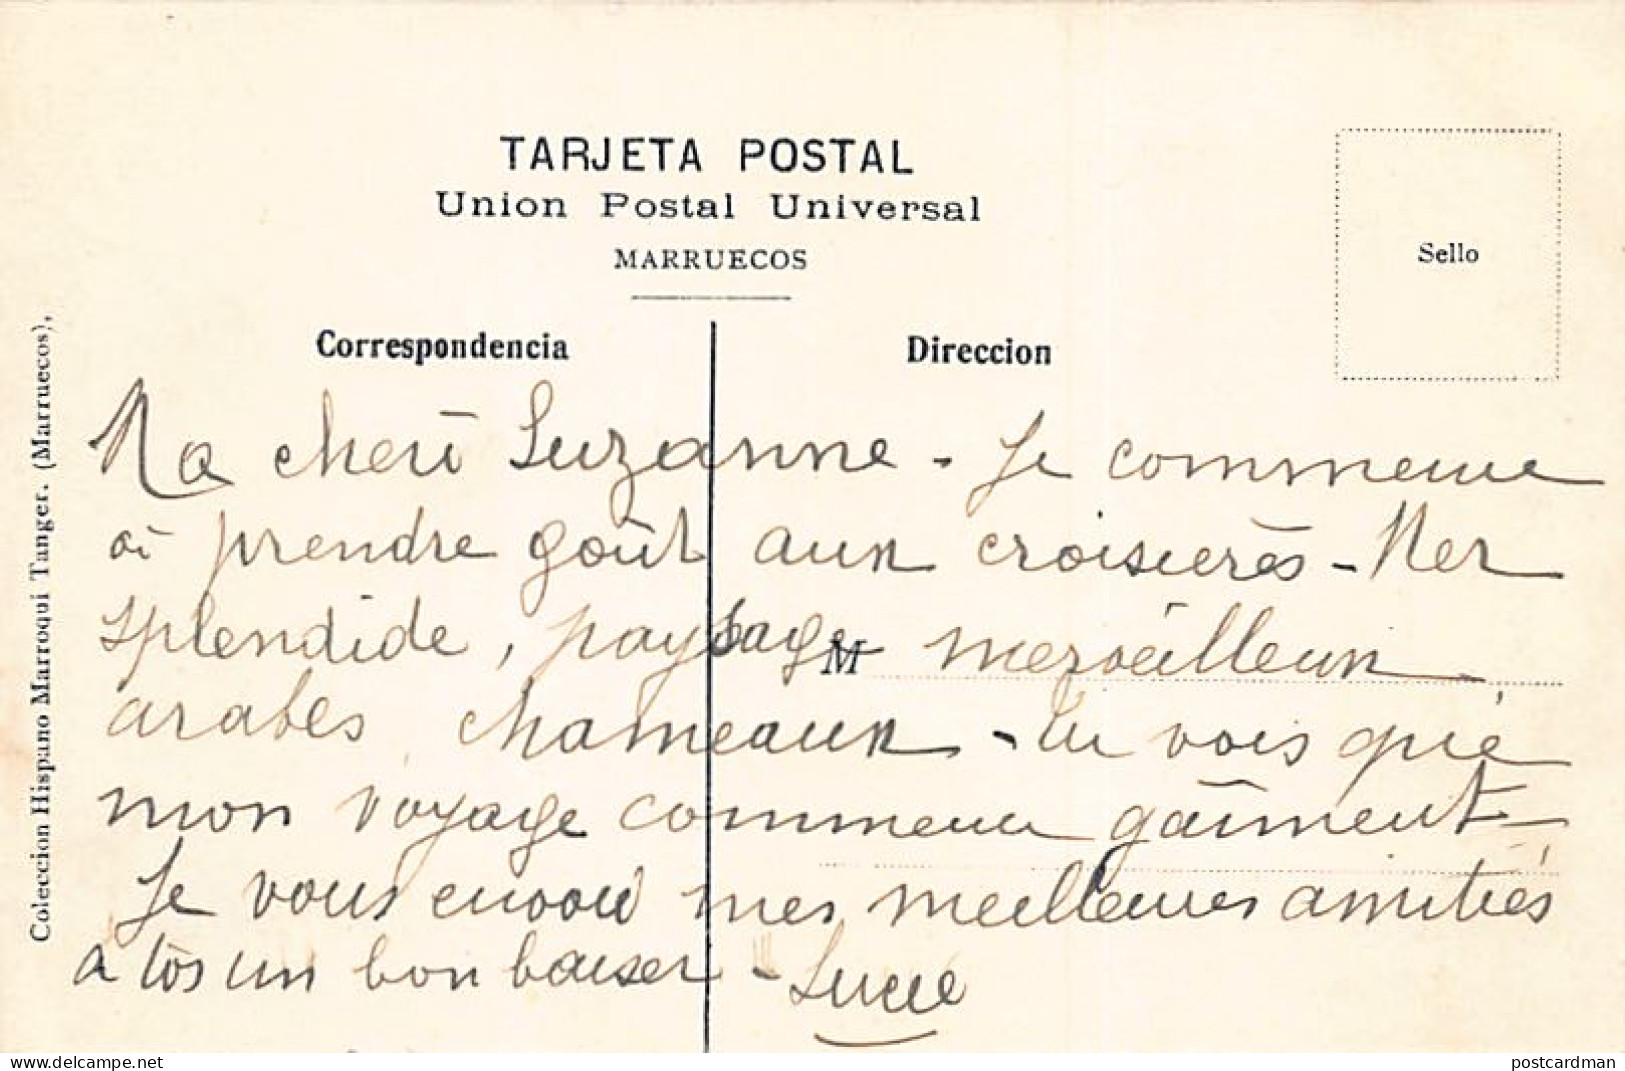 TARJETA POSTAL
Union Postal Universal
MARRUECOS
Sello
Correspondencia
Direccion
Coleccion Hispano Marroqui Tanger. (Marruecos),
Ma cherie Suzanne - Je commence
à prendre goût aux croisières - Mer
splendide, paysage merveilleux
M
arabes, chameaux - tu vois que
mon voyage commence gaiment -
Je vous envoie mes meilleures amitiés
à tos un bon baiser - Lucie
delcampe.net
postcardman